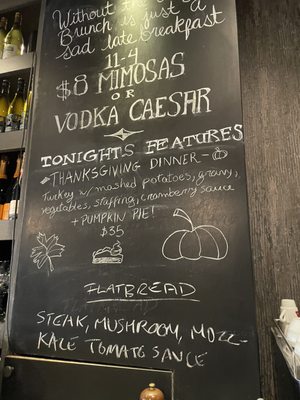 Without the
Brunch is just a
sad late breakfast
11-4
$8 MIMOSAS
OR
VODKA CAESAR
TONIGHT'S FEATURES
THANKSGIVING DINNER -
Turkey w/ mashed potatoes, gravy,
vegetables, stuffing, cranberry sauce
+ PUMPKIN PIE!
$35
FLATBREAD
STEAK, MUSHROOM, MOZZ-
KALE TOMATO SAUCE